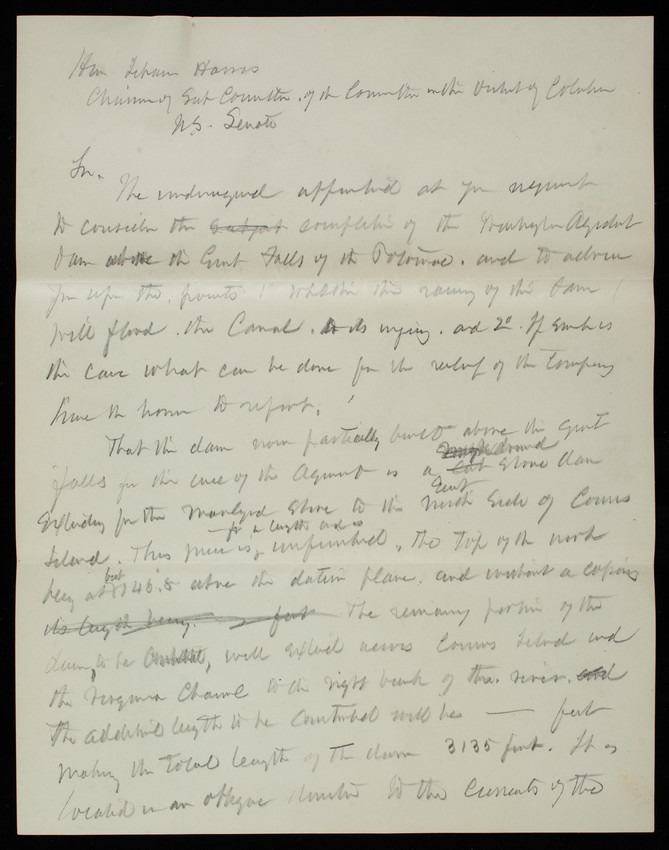 Hon Isham Harris
Chairman of Sub Committee of the Committee on the District of Columbia
U.S. Senate
Sir.
The undersigned appointed at your request
to consider the subject completion of the Washington Aqueduct
Dam above the Great Falls of the Potomac. and to advise
you upon the points 1st Whether the raising of the dam
will flood the Canal to its injury. and 2d If such is
the case what can be done for the relief of the Company
have the honor to report.
That the dam now partially built above the Great
Falls for the use of the Aqueduct is a cut stone dam
extending from the Maryland Shore to the Side of Conns
Island. This piece is for a length unfinished, the top of the work
being at but 145.5 above the datum plane, and without a coping
its length being feet The remaining portion of the
dam, to be will extend across Conns Island and
the Virginia Channel to the right bank of the river. and
The additional length to be constructed will be — feet
making the total length of the dam 3135 feet. It is
located in an oblique direction to the currents of the